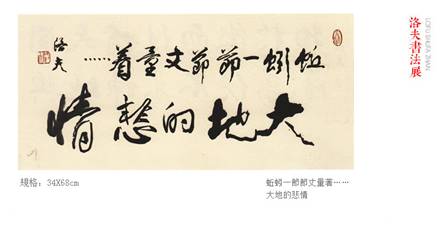 蚯蚓一節節丈量着……
大地的悲情
洛夫
洛夫書法展
LOFU SHUFA ZHAN
規格：34X68cm
蚯蚓一節節丈量著……
大地的悲情